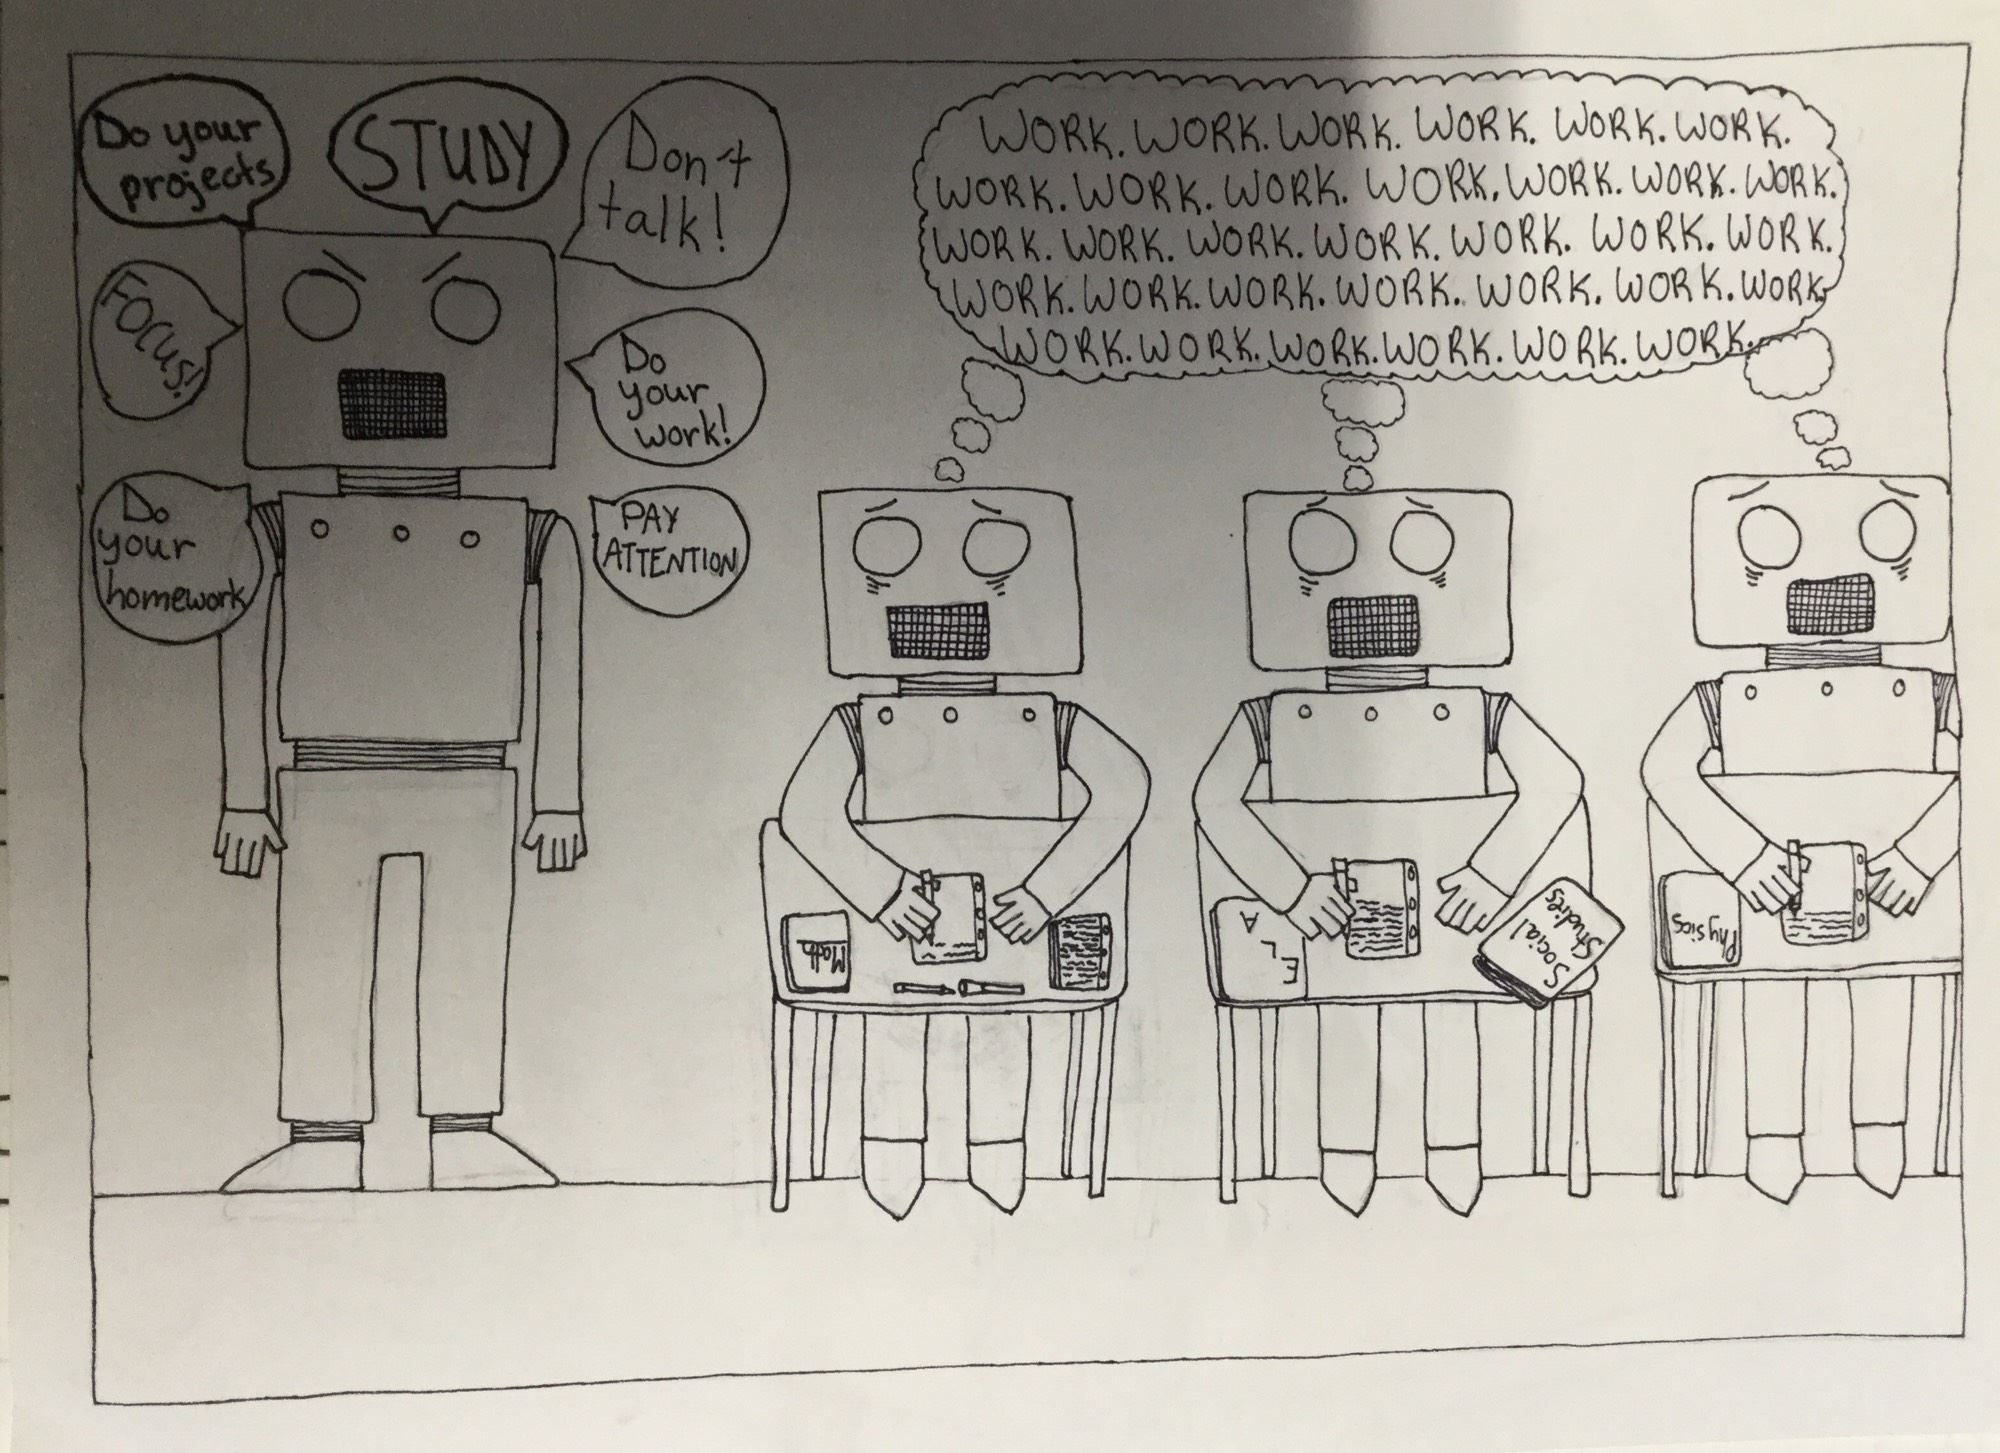 Do your
projects
STUDY
Don't
talk!
FOCUS!
Do
your
work!
Do
your
homework
PAY
ATTENTION
WORK. WORK. WORK. WORK. WORK. WORK.
WORK. WORK. WORK. WORK. WORK. WORK. WORK.
WORK. WORK. WORK. WORK. WORK. WORK. WORK.
WORK. WORK. WORK. WORK. WORK. WORK. WORK
WORK. WORK. WORK. WORK. WORK. WORK.
Math
ELA
Social
Studies
Physics